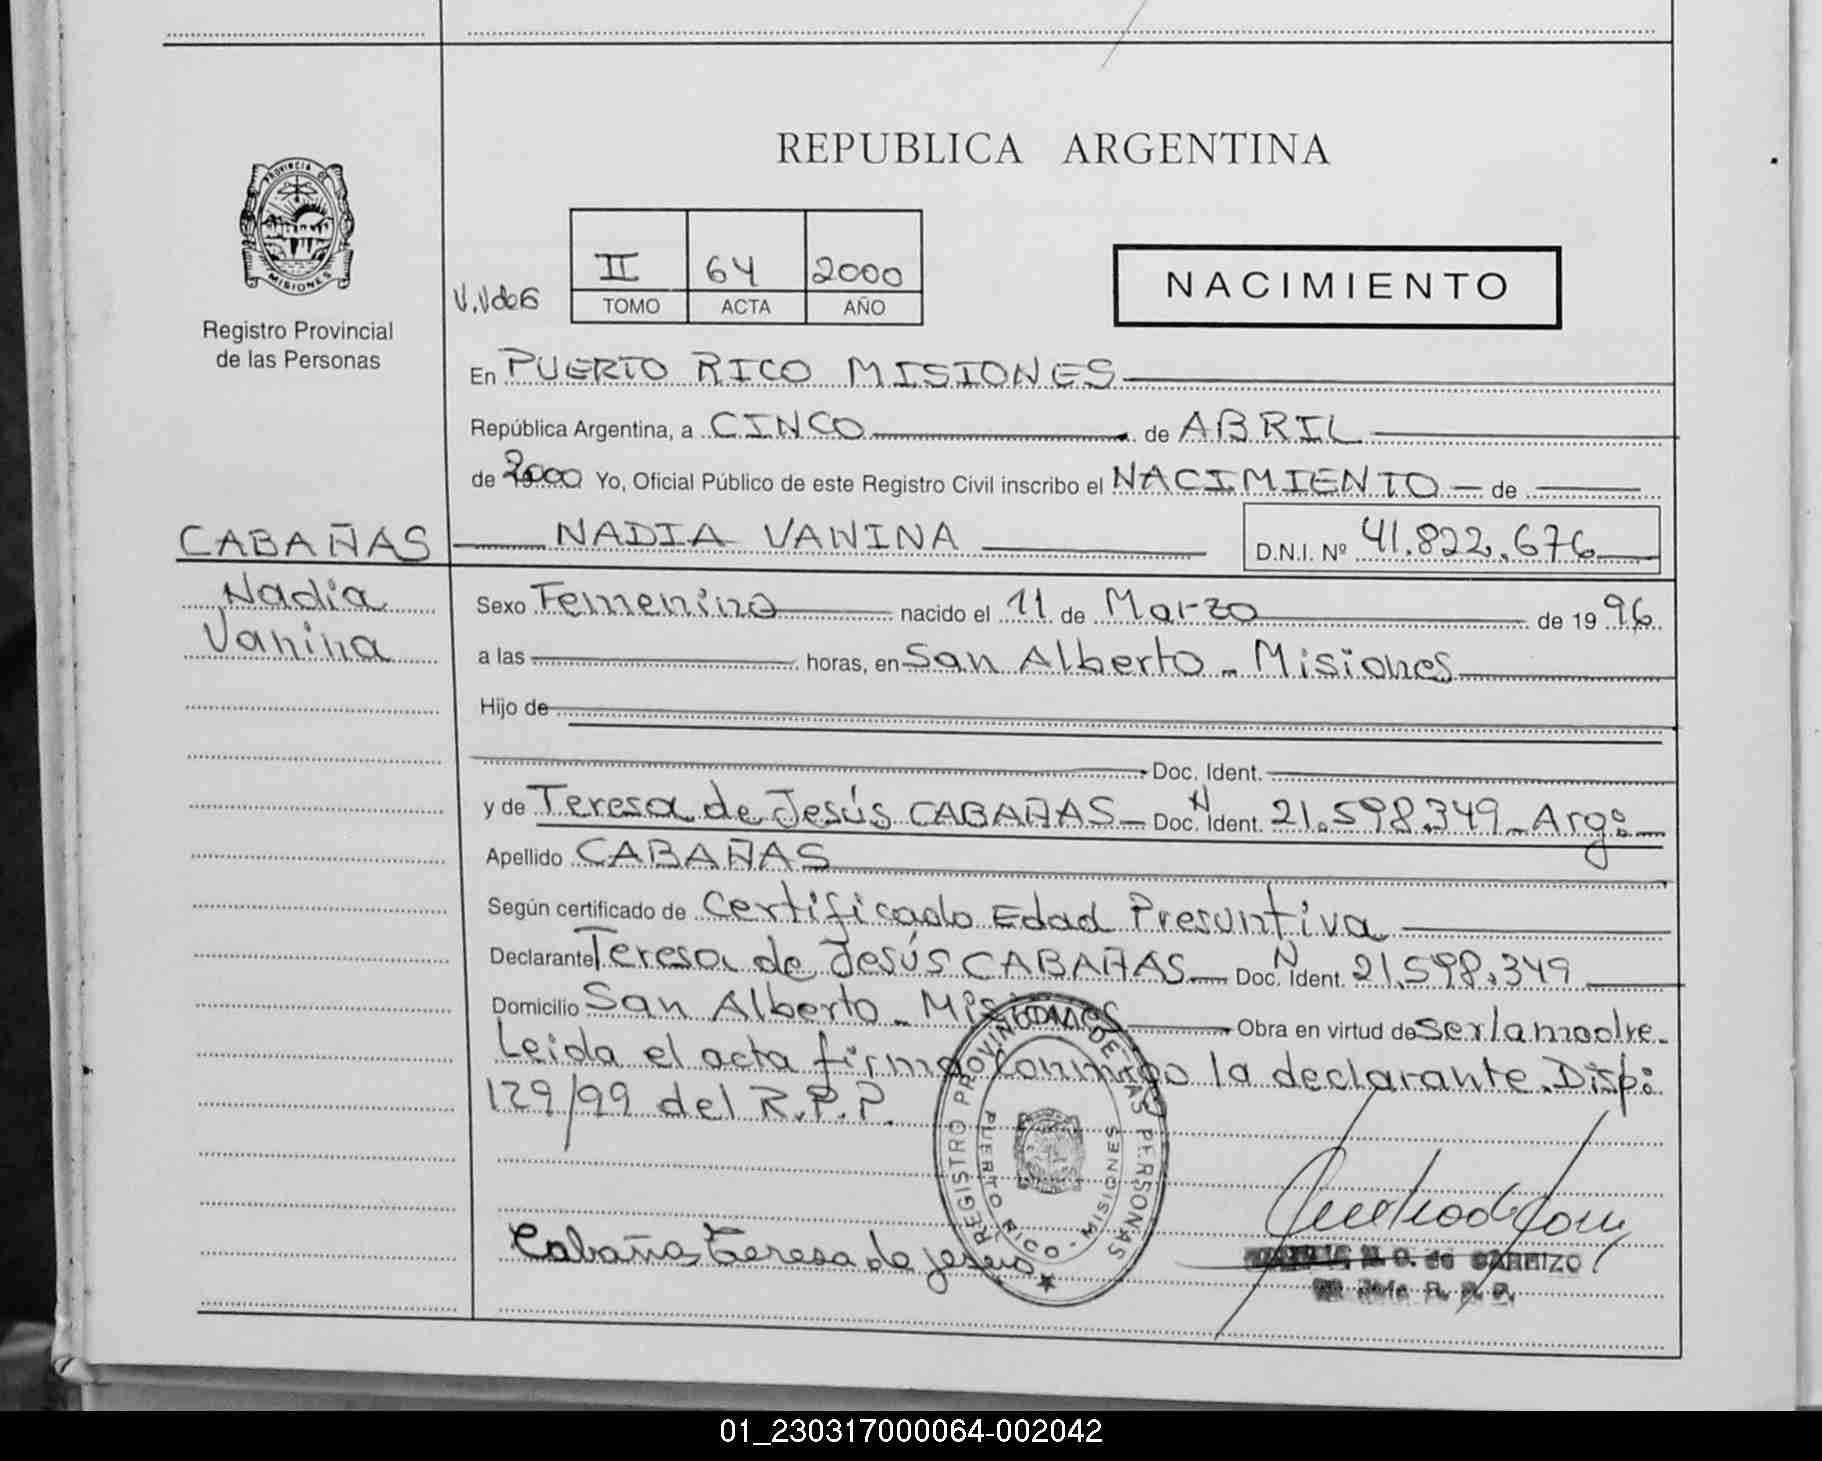 REPUBLICA ARGENTINA
PROVINCIA DE
MISIONES
Registro Provincial
de las Personas
II 64 2000
TOMO ACTA AÑO
NACIMIENTO
En PUERTO RICO MISIONES
República Argentina, a CINCO de ABRIL
de 2000 Yo, Oficial Público de este Registro Civil inscribo el NACIMIENTO de
CABAÑAS NADIA VANINA D.N.I. Nº 41.822.676
Nadia
Vanina
Sexo Femenino nacido el 11 de Marzo de 1996
a las horas, en San Alberto - Misiones
Hijo de
Doc. Ident.
y de Teresa de Jesús CABAÑAS - Doc. N Ident. 21.598.349 - Argº
Apellido CABAÑAS
Según certificado de Certificado Edad Presuntiva
Declarante Teresa de Jesús CABAÑAS - Doc. N Ident. 21.598.349
Domicilio San Alberto - Misiones Obra en virtud de ser la madre.
Leida el acta firma conmigo la declarante. Disp:
129/99 del R.P.P.
REGISTRO PROVINCIAL DE LAS PERSONAS
PUERTO RICO - MISIONES
Cabañas Teresa de Jesus
de CARRIZO
01_230317000064-002042